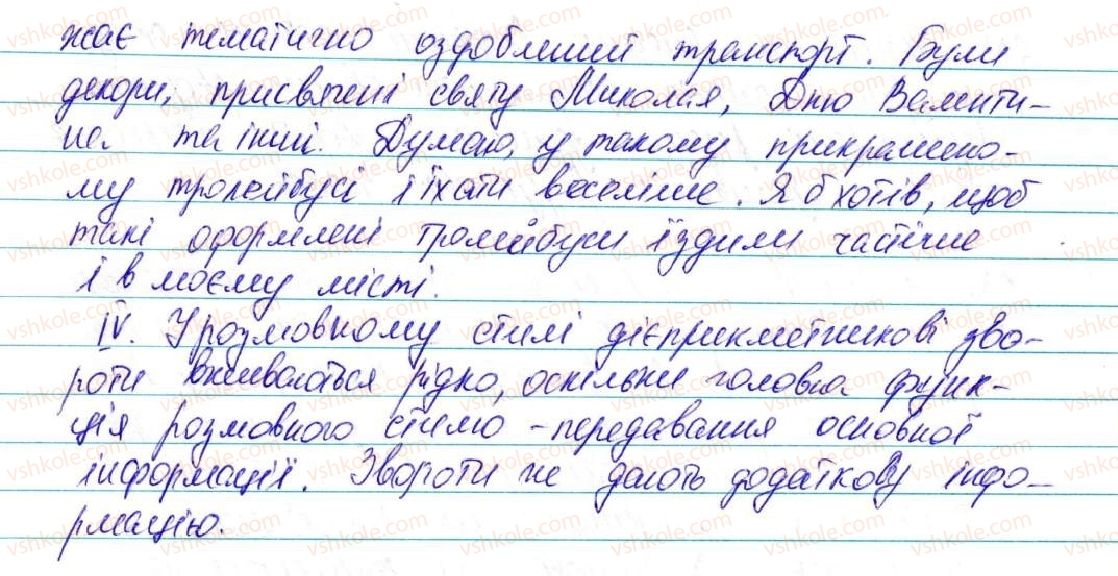 жає тематично оздоблений транспорт. Були
декори, присвячені святу Миколая, Дню Валенти-
на та інші. Думаю, у такому прикрашено-
му тролейбусі і їхати веселіше. Я б хотів, щоб
такі оформлені тролейбуси їздили частіше
і в моєму місті.
IV. У розмовному стилі дієприкметникові зво-
роти вживаються рідко, оскільки головна функ-
ція розмовного стилю - передавання основної
інформації. Звороти ж дають додаткову інфо-
рмацію.